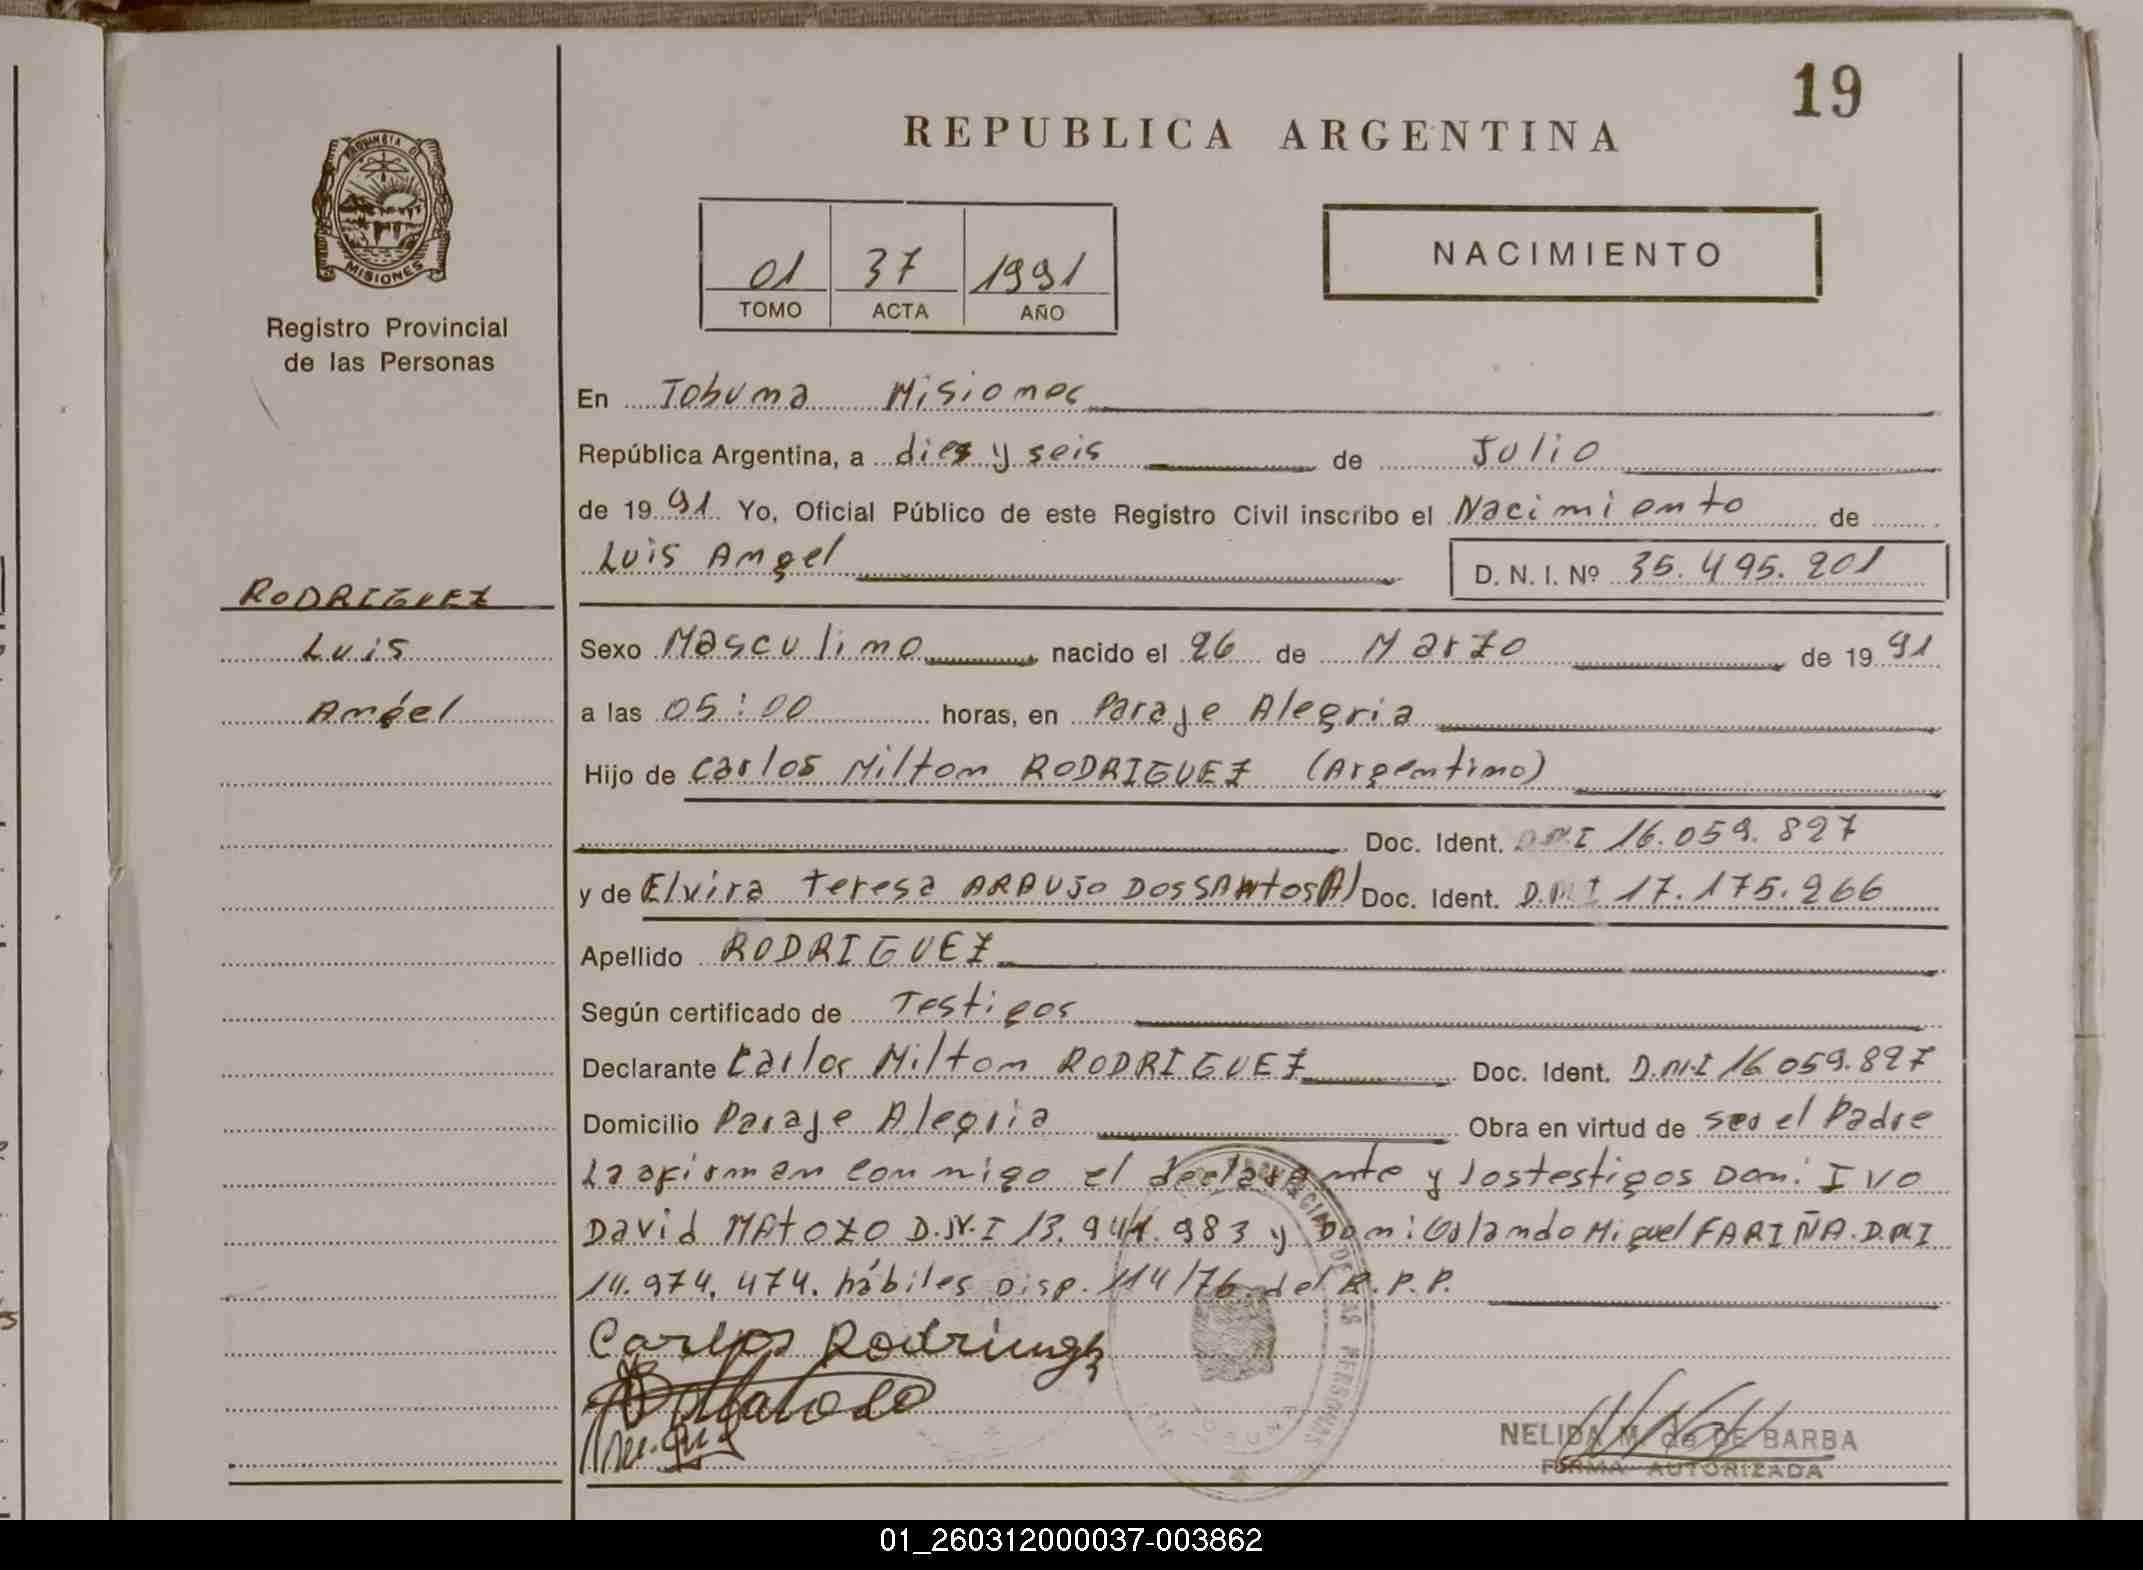 19
REPUBLICA ARGENTINA
PROVINCIA DE
MISIONES
Registro Provincial
de las Personas
01 37 1991
TOMO ACTA AÑO
NACIMIENTO
En Tobuna Misiones
República Argentina, a dies y seis de Julio
de 1991 Yo, Oficial Público de este Registro Civil inscribo el Nacimiento de
Luis Angel D. N. I. Nº 35.495.201
RODRIGUEZ
Luis
Angel
Sexo Masculino nacido el 26 de Marzo de 1991
a las 05:00 horas, en Paraje Alegria
Hijo de Carlos Milton RODRIGUEZ (Argentino)
Doc. Ident. D.N.I 16.059.827
y de Elvira Teresa ARAUJO DOSSANtOS(A) Doc. Ident. D.N.I 17.175.266
Apellido RODRIGUEZ
Según certificado de Testigos
Declarante Carlos Milton RODRIGUEZ Doc. Ident. D.N.I 16.059.827
Domicilio Paraje Alegria Obra en virtud de ser el Padre
La firman conmigo el declarante y los testigos Don: IVO
David MAtOZO D.N.I 13.941.983 y Don: Orlando Miguel FARIÑA. D.N.I
14.974.474. hábiles Disp. 114/76 del R.P.P.
Carlos Rodringz
NELIDA M. de DE BARBA
FIRMA AUTORIZADA
01_260312000037-003862